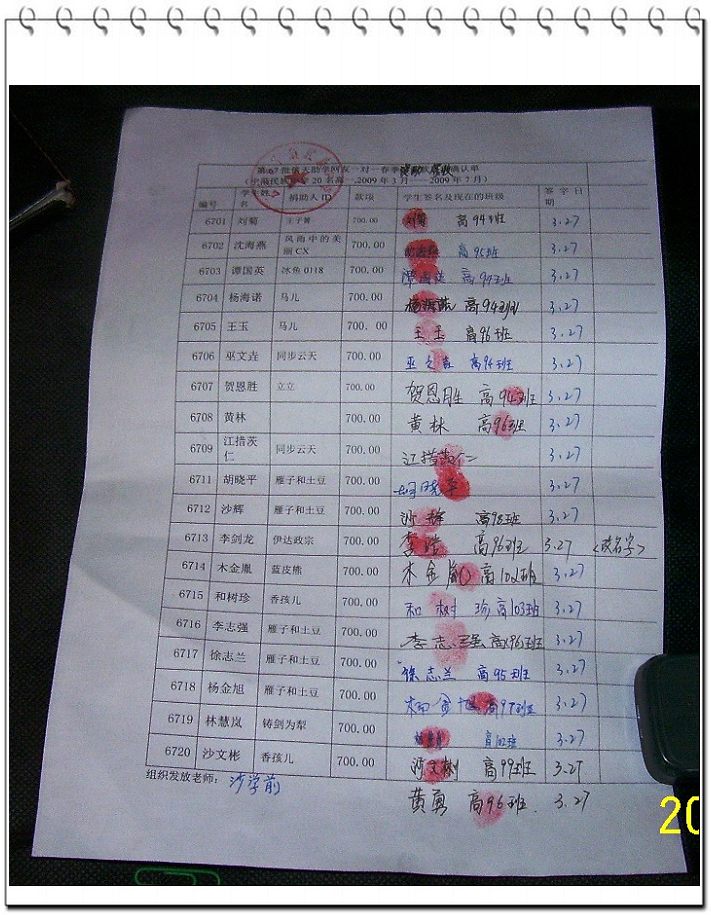 第67批
一对一春季
确认单
20名高一,2009年3月——2009年7月)
编号 学生姓名 捐助人ID 款项 学生签名及现在的班级 签字日期
6701 刘菊 王子菁 700.00 刘菊 高94班 3.27
6702 沈海燕 风雨中的美丽CX 700.00 沈海燕 高95班 3.27
6703 谭国英 冰鱼0118 700.00 谭国英 高94班 3.27
6704 杨海诺 马儿 700.00 高94班 3.27
6705 王玉 马儿 700.00 王玉 高96班 3.27
6706 巫文垚 同步云天 700.00 巫文垚 高94班 3.27
6707 贺恩胜 立立 700.00 贺恩胜 高94班 3.27
6708 黄林 700.00 黄林 高96班 3.27
6709 江措茨仁 同步云天 700.00 江措茨仁 3.27
6711 胡晓平 雁子和土豆 700.00 胡晓平 3.27
6712 沙辉 雁子和土豆 700.00 沙辉 高98班 3.27
6713 李剑龙 伊达政宗 700.00 高96班 3.27 <改名字>
6714 木金胤 蓝皮熊 700.00 木金胤 高102班 3.27
6715 和树珍 香孩儿 700.00 和树珍 高103班 3.27
6716 李志强 雁子和土豆 700.00 李志强 高96班 3.27
6717 徐志兰 雁子和土豆 700.00 徐志兰 高95班 3.27
6718 杨金旭 雁子和土豆 700.00 杨金旭 高97班 3.27
6719 林慧岚 铸剑为犁 700.00 3.27
6720 沙文彬 香孩儿 700.00 沙文彬 高99班 3.27
组织发放老师: 沙学前
黄勇 高96班. 3.27
20